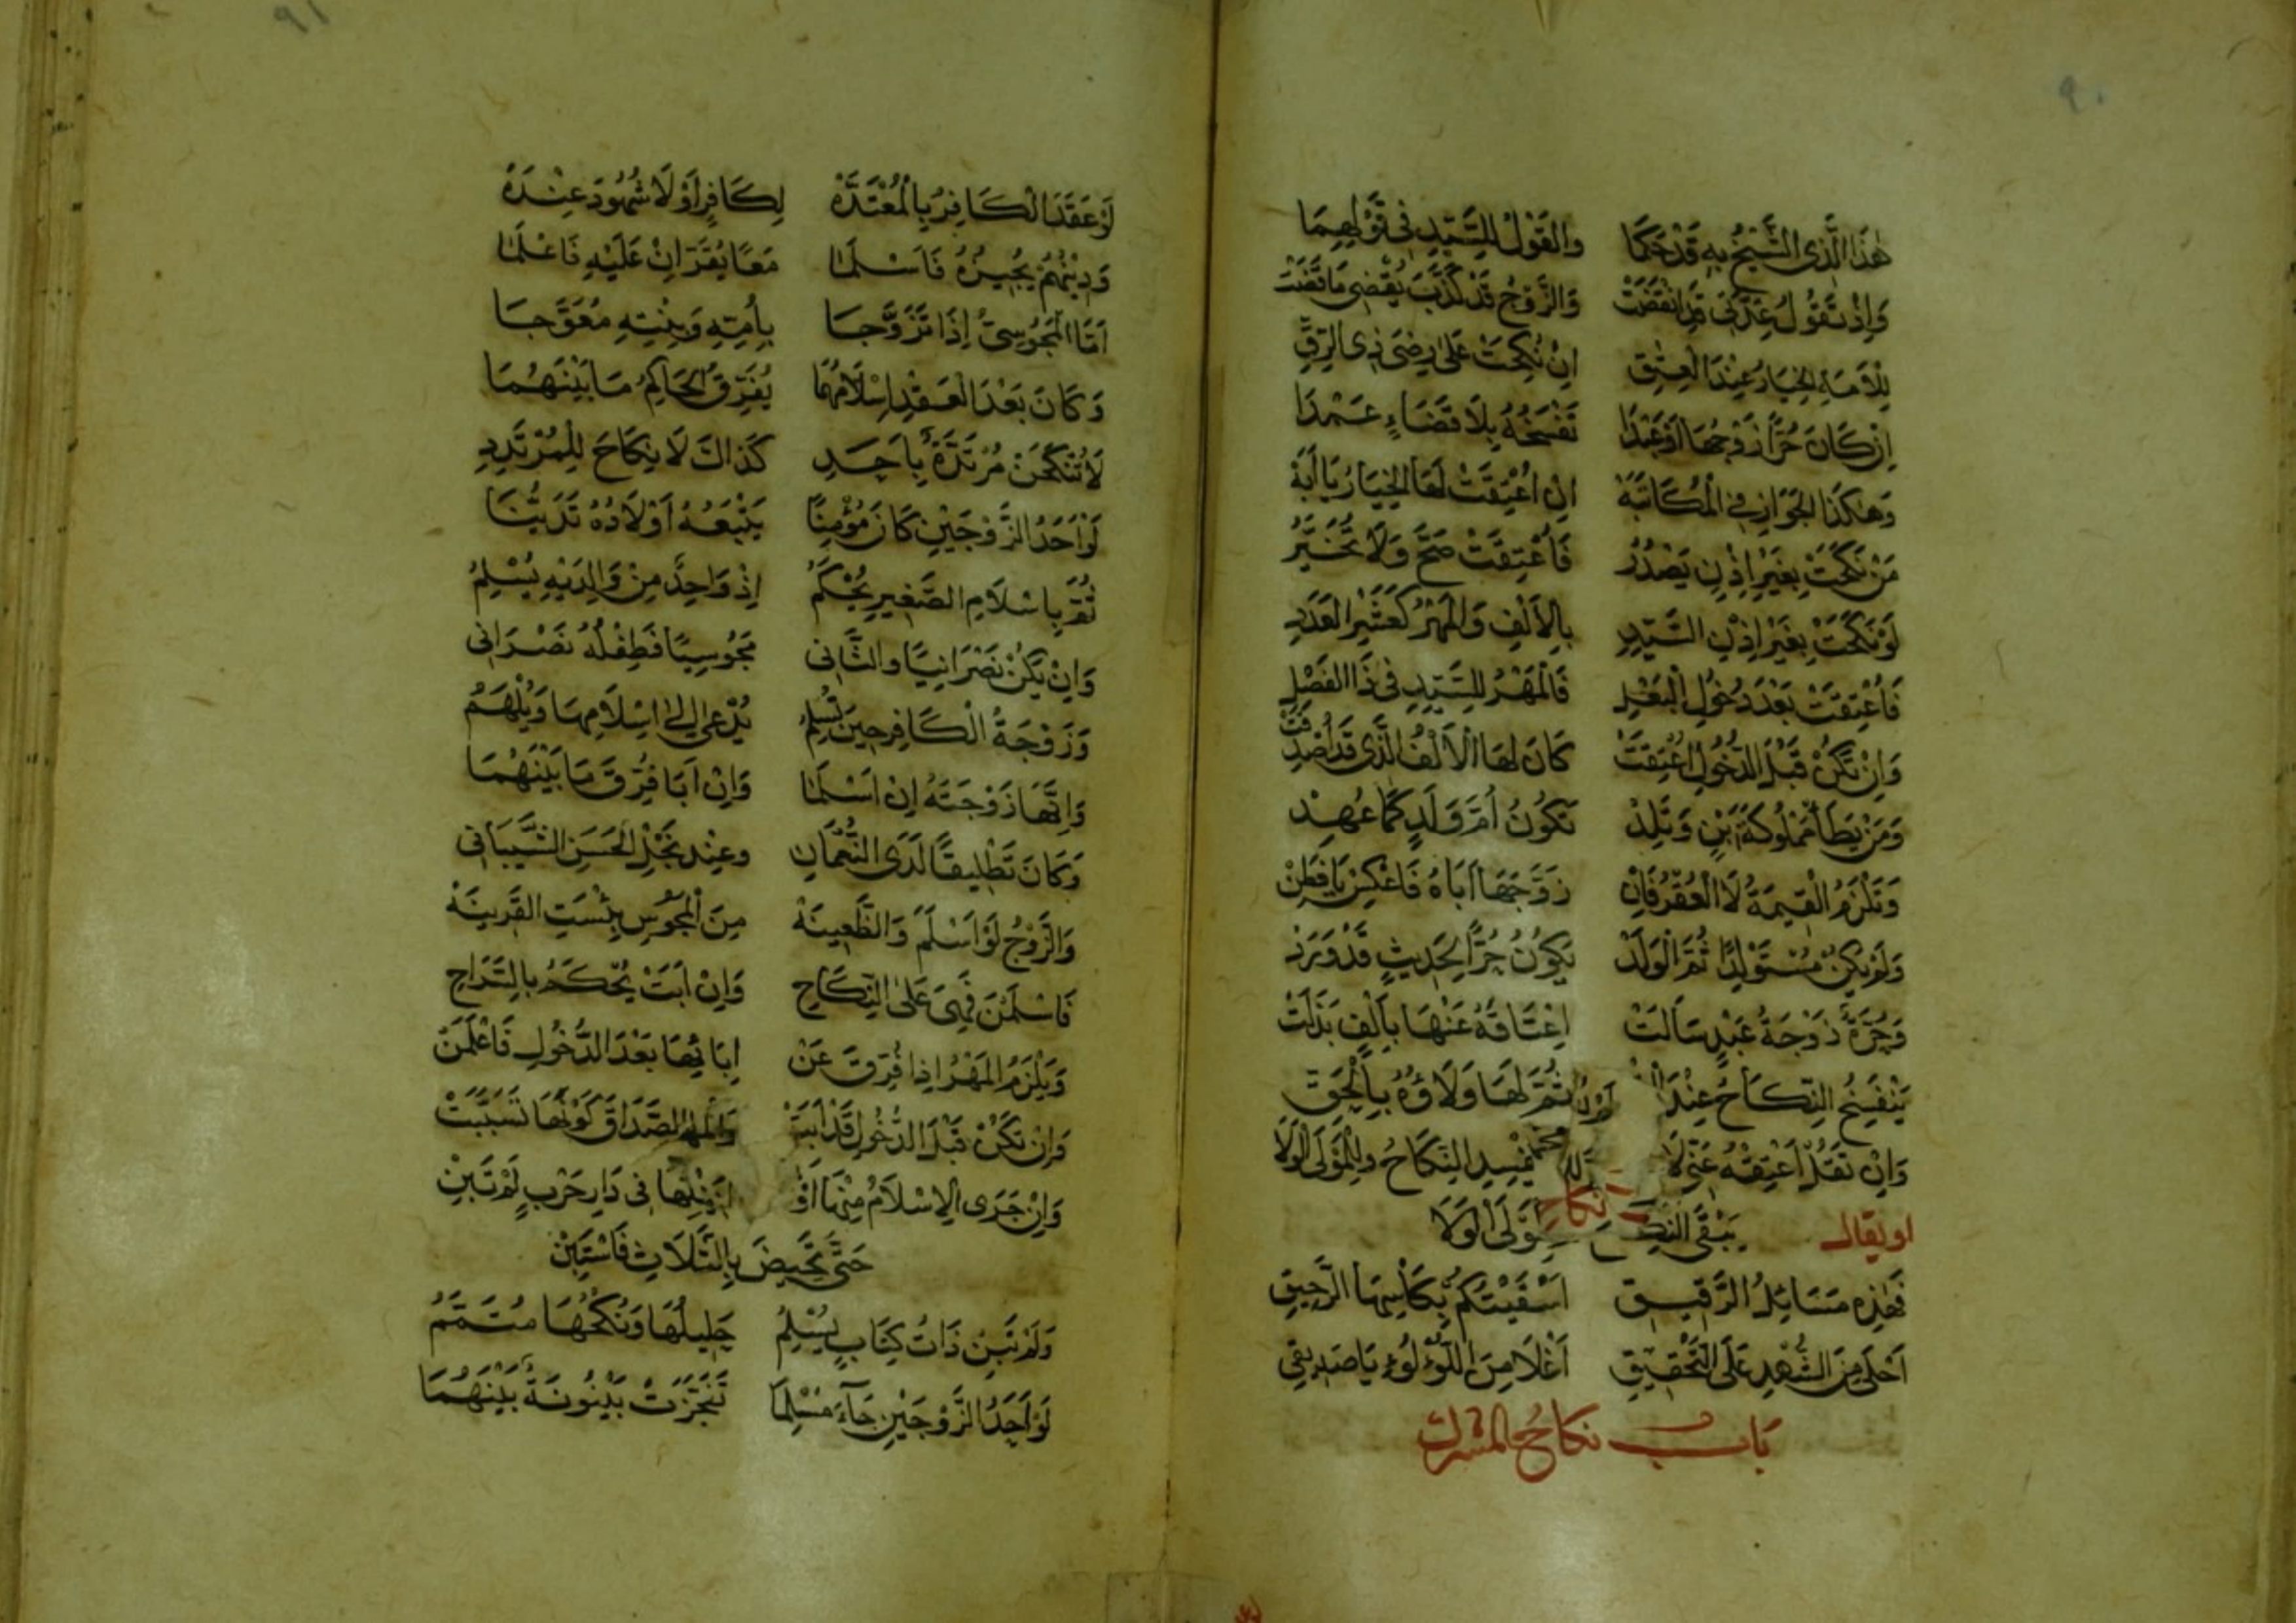 ٩٠
هٰذَا الَّذِي الشَّيْخُ بِهِ قَدْ حَكَمَا وَالقَوْلُ لِلسَّيِّدِ فِي قَوْلِهِمَا
وَإِنْ تَقُولُ عِدَّتِي قَدِ انْقَضَتْ وَالزَّوْجُ قَدْ كَذَّبَ يُقْضَى مَا قَضَتْ
لِلْأَمَةِ الخِيَارُ عِنْدَ الْعِتْقِ اِنْ نُكِحَتْ عَلَى رِضَى ذِي الرِّقِّ
اِنْ كَانَ حُرًّا زَوْجُهَا اَوْ عَبْدَا تَفْسَخُهُ بِلَا قَضَاءٍ عَمْدَا
وَهٰكَذَا الجَوَازُ فِي الْمُكَاتَبَهْ اِنْ اُعْتِقَتْ لَهَا الخِيَارُ يَا اَبَهْ
مَنْ نَكَحَتْ بِغَيْرِ اِذْنٍ يَصْدُرُ فَأُعْتِقَتْ صَحَّ وَلَا تُخَيَّرُ
لَوْ نَكَحَتْ بِغَيْرِ اِذْنِ السَّيِّدِ بِالأَلْفِ وَالمَهْرُ كَعُشْرِ العَدَدِ
فَأُعْتِقَتْ بَعْدَ دُخُولِ الْبَعْلِ فَالْمَهْرُ لِلسَّيِّدِ فِي ذَا الفَصْلِ
وَاِنْ تَكُنْ قَبْلَ الدُّخُولِ اُعْتِقَتْ كَانَ لَهَا الْأَلْفُ الَّذِي قَدْ اُصْدِقَتْ
وَمَنْ يَطَأْ مَمْلُوكَةَ ابْنٍ وَتَلِدْ تَكُونُ اُمَّ وَلَدٍ كَمَا عُهِدْ
وَتَلْزَمُ الْقِيمَةُ لَا الْعُقْرُ فَاِنْ زَوَّجَهَا اَبَاهُ فَاعْكِسْ يَا فَطِنْ
وَلَمْ يَكُنْ مُسْتَوْلِدًا ثُمَّ الْوَلَدْ يَكُونُ حُرًّا لِحَدِيثٍ قَدْ وَرَدْ
وَحُرَّةٌ زَوْجَةُ عَبْدٍ سَأَلَتْ اِعْتَاقَهُ عَنْهَا بِأَلْفٍ بَذَلَتْ
يَنْفَسِخُ النِّكَاحُ عِنْدَ ثُمَّ لَهَا وَلَاؤُهُ بِالْحَقِّ
وَاِنْ تَقُلْ اَعْتِقْهُ عَنِّي لَا يَفْسِدِ النِّكَاحُ وَلِلْمَوْلَى الْوَلَا
او يقال يَبْقَى النكاح نكاح لَى الْوَلَا
فَهٰذِهِ مَسَائِلُ الرَّقِيقِ اَسْقَيْتُكُمْ بِكَأْسِهَا الرَّحِيقِ
اَحْلَى مِنَ الشَّهْدِ عَلَى التَّحْقِيقِ اَغْلَا مِنَ اللُّؤْلُؤِ يَا صَدِيقِي
بَاب نكاح المشرك
٩١
لَوْ عَقَدَ الْكَافِرُ بِالْمُعْتَدَّهْ لِكَافِرٍ اَوْ لَا شُهُودَ عِنْدَهْ
وَدِينُهُمْ يُجِيزُهُ فَاَسْلَمَا مَعًا يُقَرَّانِ عَلَيْهِ فَاعْلَمَا
اَمَّا الْمَجُوسِيُّ اِذَا تَزَوَّجَا بِأُمِّهِ وَبِنْتِهِ مُعَوَّجَا
وَكَانَ بَعْدَ الْعَقْدِ اِسْلَامُهُمَا يُفَرِّقُ الحَاكِمُ مَا بَيْنَهُمَا
لَا تُنْكَحَنْ مُرْتَدَّةٌ بِأَحَدِ كَذَاكَ لَا نِكَاحَ لِلْمُرْتَدِدِ
لَوْ اَحَدُ الزَّوْجَيْنِ كَانَ مُؤْمِنًا يَتْبَعُهُ اَوْلَادُهُ تَدَيُّنَا
ثُمَّ بِاِسْلَامِ الصَّغِيرِ يُحْكَمُ اِذْ وَاحِدٌ مِنْ وَالِدَيْهِ يُسْلِمُ
وَاِنْ يَكُنْ نَصْرَانِيًّا وَالثَّانِي مَجُوسِيًّا فَطِفْلُهُ نَصْرَانِي
وَزَوْجَةُ الْكَافِرِ حِينَ تُسْلِمُ يُدْعَى اِلَى اِسْلَامِهَا وَيُلْهَمُ
وَاِنَّهَا زَوْجَتُهُ اِنْ اَسْلَمَا وَاِنْ اَبَا فُرِّقَ مَا بَيْنَهُمَا
وَكَانَ تَطْلِيقًا لَدَى النُّعْمَانِ وَعِنْدَ نَجْلِ الْحَسَنِ الشَّيْبَانِي
وَالزَّوْجُ لَوْ اَسْلَمَ وَالظَّعِينَهْ مِنَ الْمَجُوسِ بِئْسَتِ القَرِينَهْ
فَاَسْلَمَتْ فَهْيَ عَلَى النِّكَاحِ وَاِنْ اَبَتْ يُحْكَمُ بِالسَّرَاحِ
وَيَلْزَمُ المَهْرُ اِذَا فُرِّقَ عَنْ اِبَائِهَا بَعْدَ الدُّخُولِ فَاعْلَمَنْ
وَاِنْ تَكُنْ قَبْلَ الدُّخُولِ قَدْ اَبَتْ الصَّدَاقَ كَوْنُهَا تَسَبَّبَتْ
وَاِنْ جَرَى الْاِسْلَامُ مِنْهَا اَوْ فِي دَارِ حَرْبٍ لَمْ تَبِنْ
حَتَّى تَحِيضَ بِالثَّلَاثِ فَاسْتَبِنْ
وَلَمْ تَبِنْ ذَاتُ كِتَابٍ يُسْلِمُ حَلِيلُهَا وَنُكْحُهَا مُتَمَّمُ
لَوْ اَحَدُ الزَّوْجَيْنِ جَآءَ مُسْلِمَا تَنَجَّزَتْ بَيْنُونَةٌ بَيْنَهُمَا